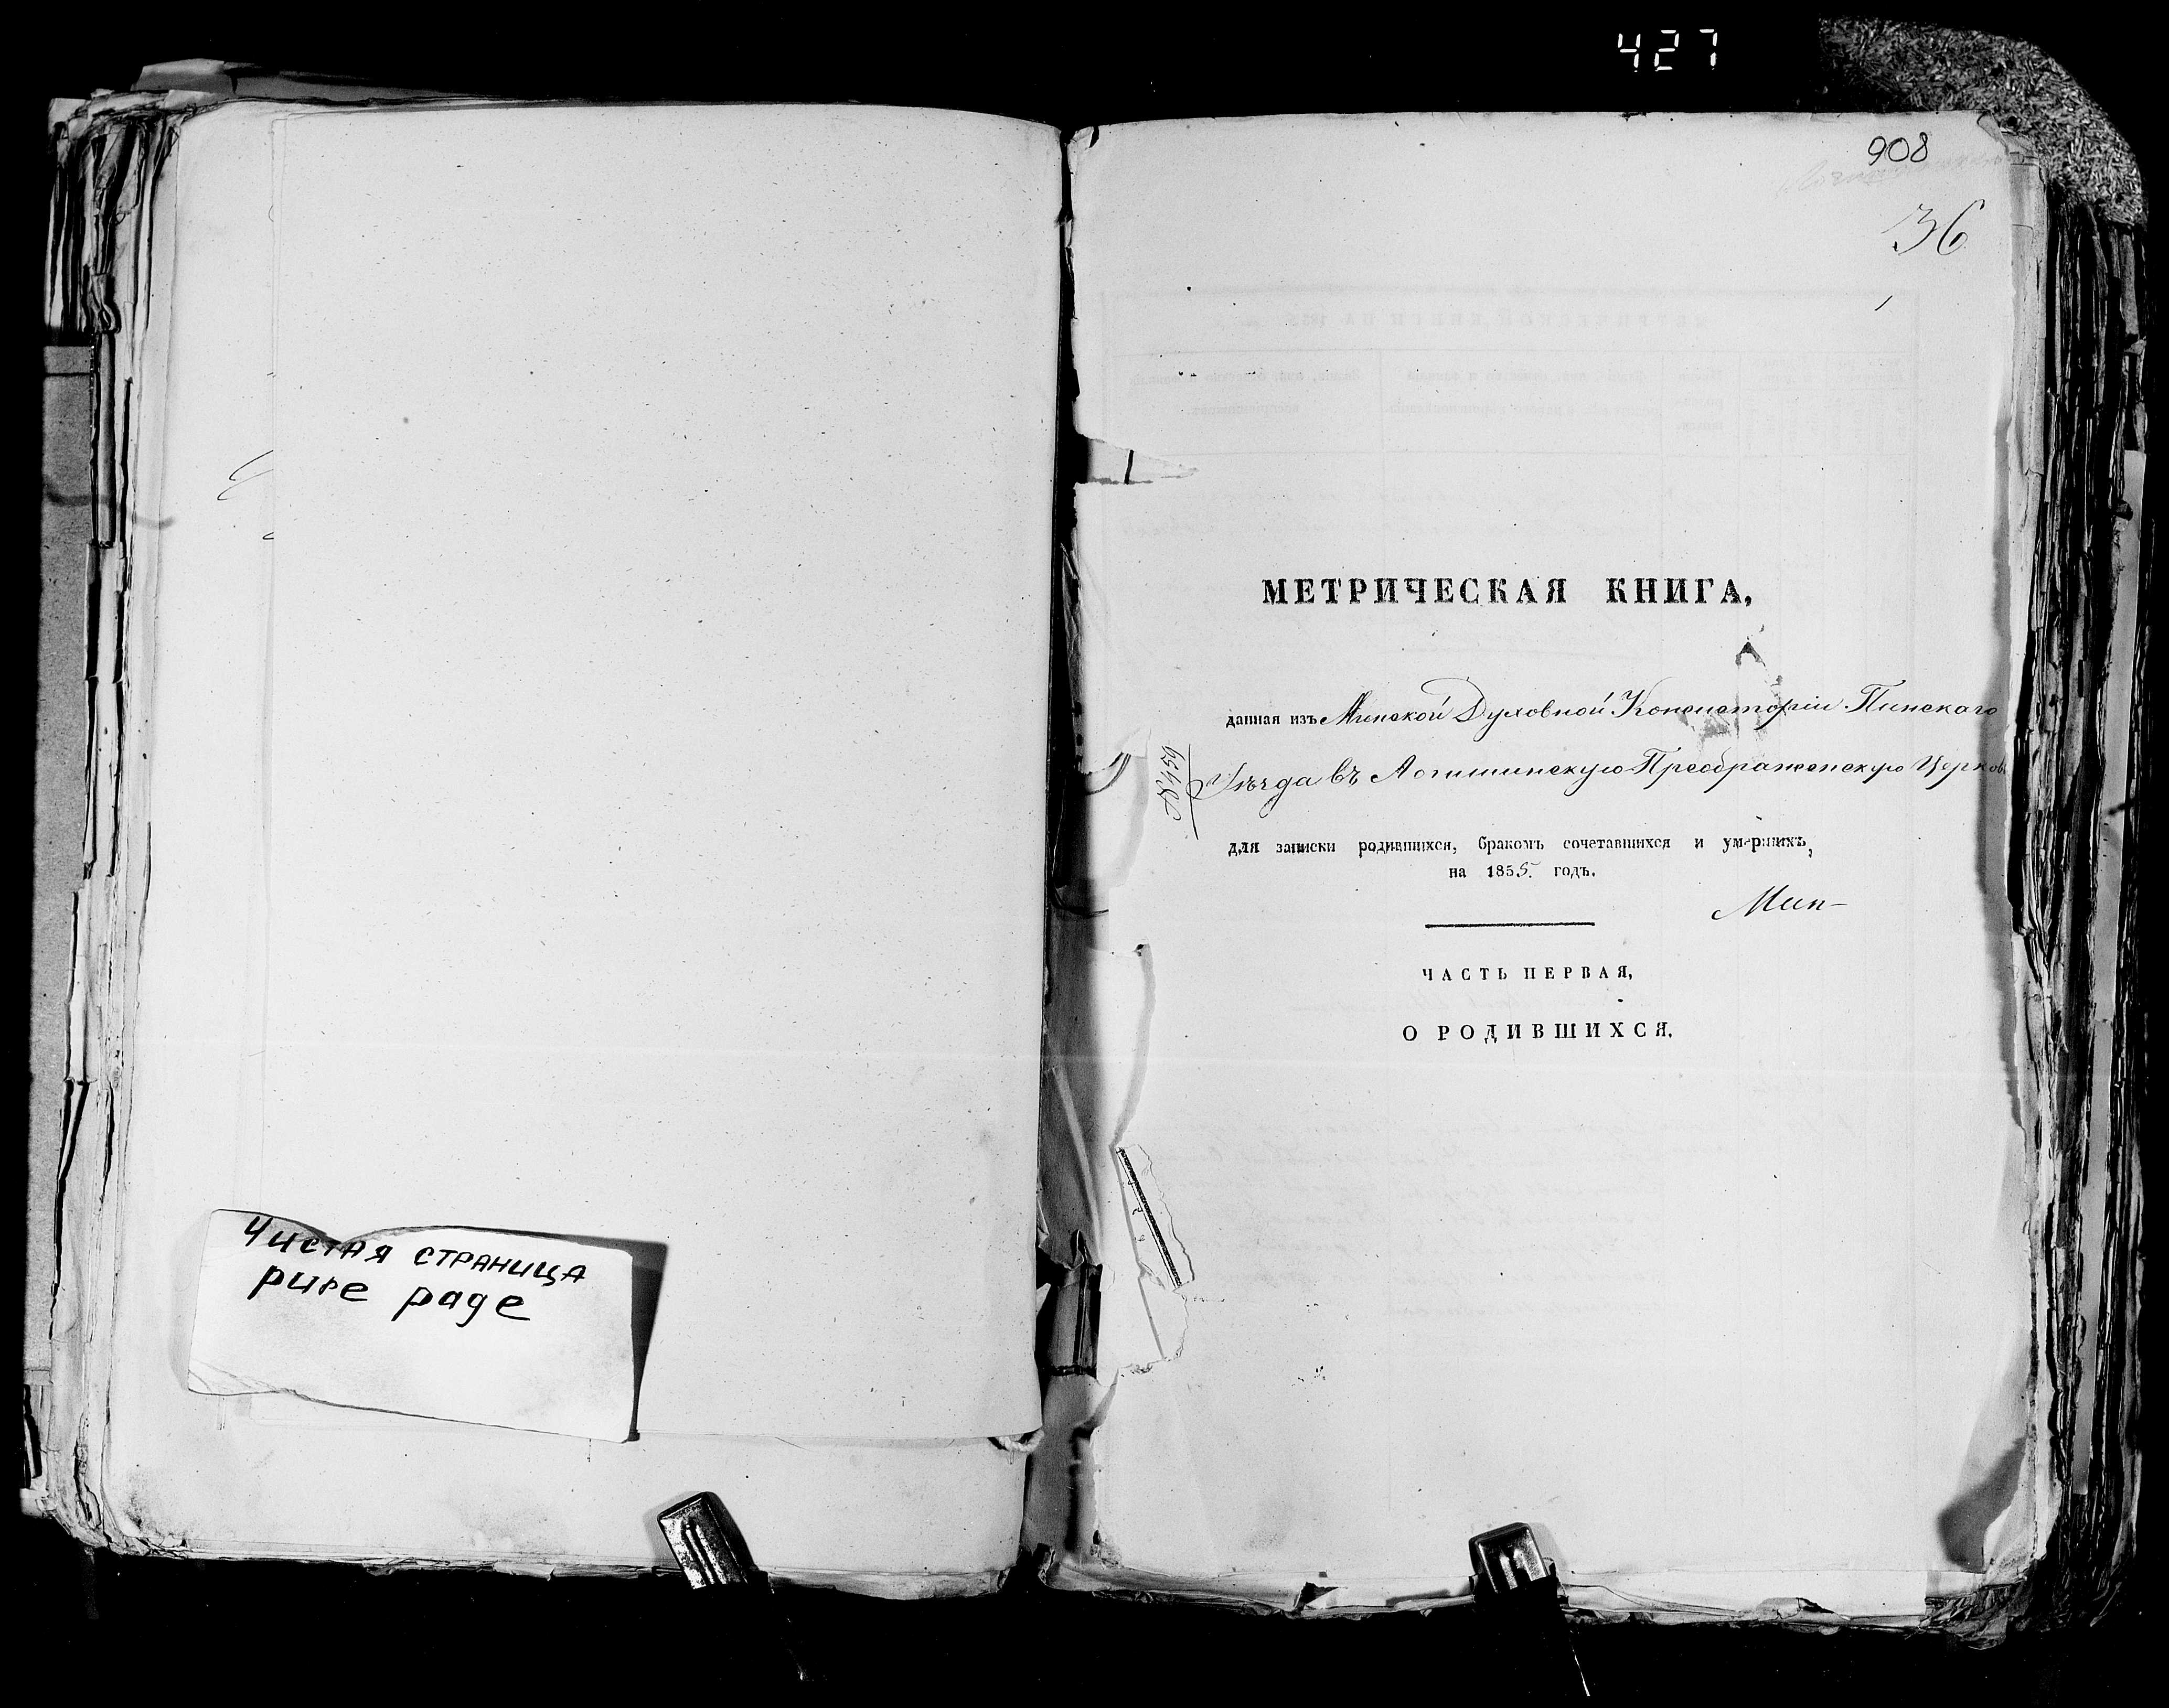 427
Чистая страница
pure page
908
36
МЕТРИЧЕСКАЯ КНИГА,
данная изъ Минской Духовной Консисторіи Пинскаго
Уѣзда въ Логишинскую Преображенскую Церковь
для записки родившихся, бракомъ сочетавшихся и умершихъ,
на 1855. годъ.
Мин-
ЧАСТЬ ПЕРВАЯ,
О РОДИВШИХСЯ.